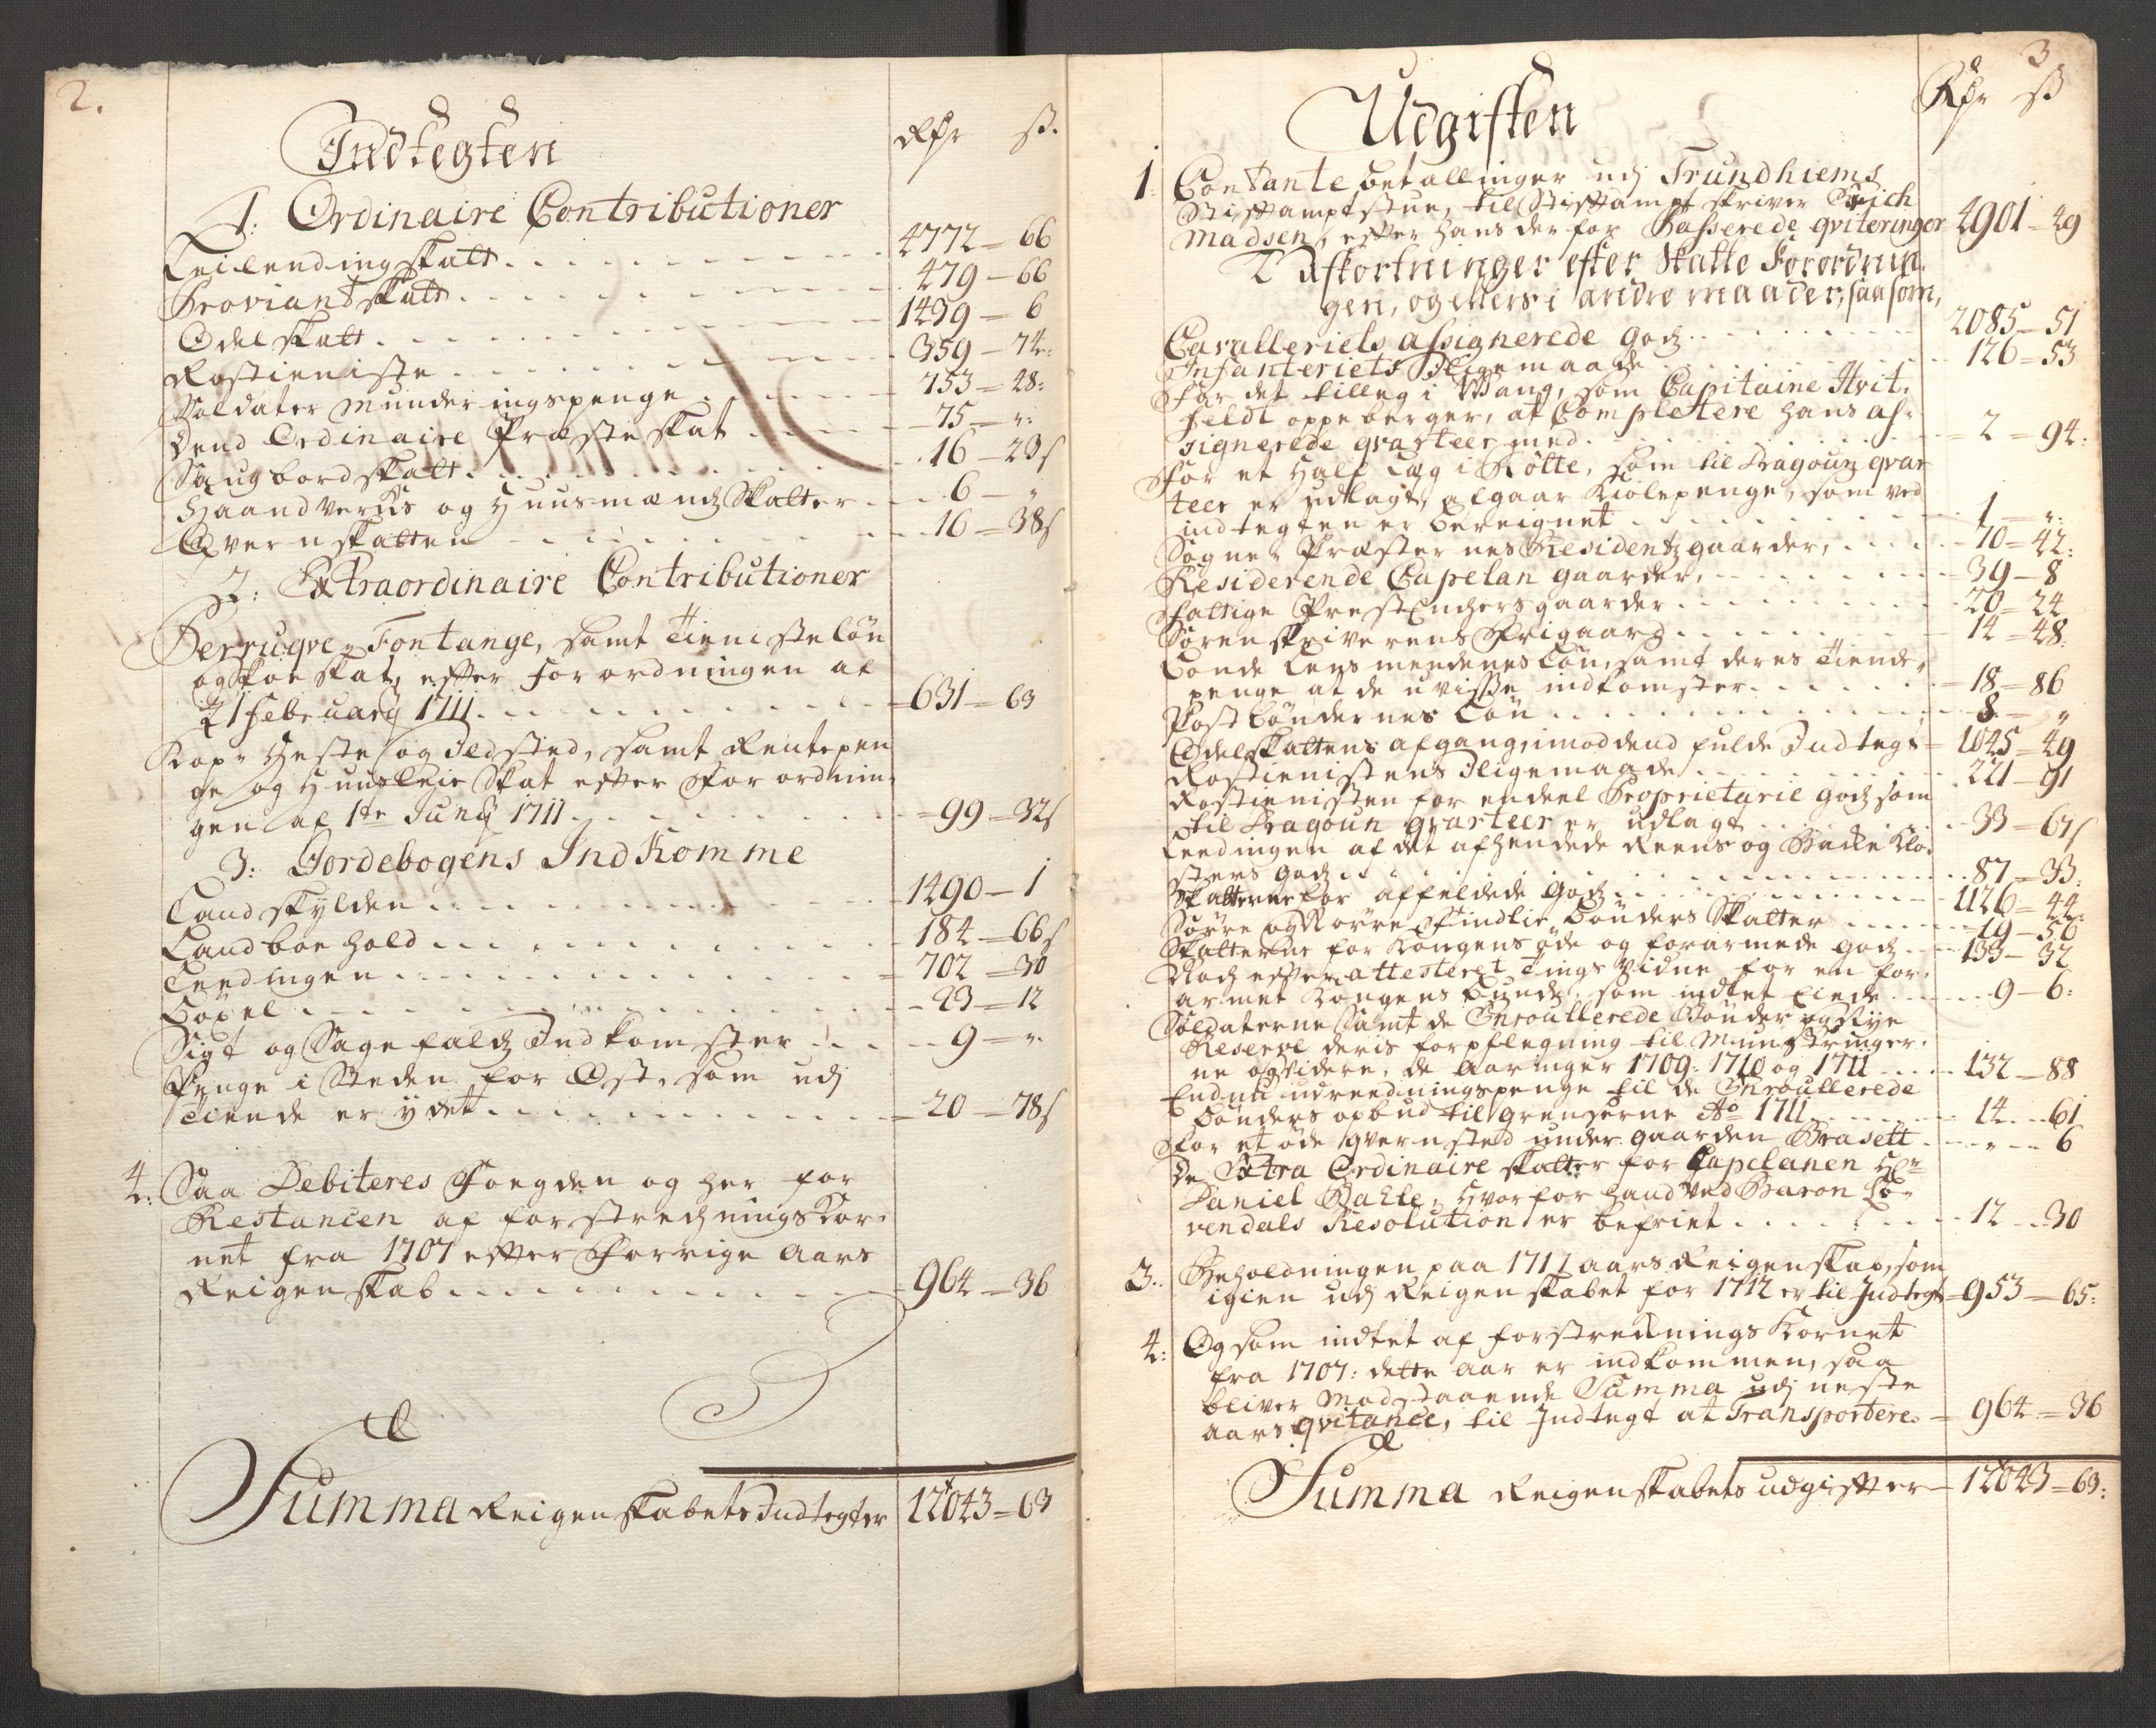 2.
Indtegten
Rdr ß.
1: Ordinaire Contributioner
Leilendingskatt 4772 – 66
Proviandskatt 479 – 66
Odelskatt 1439 – 6
Rostieniste 359 – 74:
Soldater Munderingspenge 753 – 28:
Dend Ordinaire Præsteskat 75 – „:
Saugbordskatt 16 – 23 s
Haandverks og Huusmends Skatter 6 – „
Qvernskatten 16 – 38 s
2: Extraordinaire Contributioner
Perruqve, Fontange, samt Tienisteløn
og skoe skat, efter forordningen af
21 februarij 1711 631 – 63
Kop, Heste og Ildsted, samt Rentepen
ge og Huusleie Skat efter Forordnin-
gen af 1te Junij 1711 99 – 32 s
3: Jordebogens Indkomme
Landskylden 1490 – 1
Landboe hold 184 – 66 s
Leedingen 702 – 30
Høxel 23 – 12
Sigt og Sagefalds Indkomster 9 – „
Penge i Steden for Ost, som udj
tiende er ydet 20 – 78 s
4: Saa Debiteres Fogden og her for
Restancen af forstrechningskor-
net fra 1707 efter Forrige Aars
Reigenskab 964 – 36
Summa Reigenskabets Indtegter 12043 – 63
3
Udgiften
Rdr ß
1: Contante betallinger udj Trundhiems
Stiftamptstue, til Stiftamptskriver Erich
Madsen, efter hans derfor Passerede qviteringer 4901 – 49
2 Afkortninger efter Skatte Forordnin-
gen, og ellers i andre maader, saasom,
Cavalleriets assignerede gods 2085 – 51
Infanteriets Iligemaade 126 – 53
For det tilleg i Wang, som Capitaine Hvit-
feldt oppeberger, at Completere hans as-
signerede qvarteer med 2 – 94:
For et Half Læg i Kötte, som til Dragoun qvar
teer er udlagt, afgaar Kiolepenge, som ved
indtegten er bereignet 1 – „:
Sogne Præsternes Residentz gaarder, 70 – 42:
Residerende Capelan gaarder, 39 – 8
Fattige PrestEnchers gaarder 20 – 24
Sorenskriverens Frigaard 14 – 48.
Bonde Lensmendenes Løn, samt deres tiende-
penge at de uvisse indkomster 18 – 86
Postbøndernes Løn 8 – „
Odelskattens afgang, imod dend fulde Indtegt 1045 – 49
Rostienistens Iligemaade 221 – 91
Rostienisten for endeel Proprietarie gods som
til Dragoun qvarteer er udlagt 33 – 67 s
Leedingen af det afhendede Reens og Bakke Klo-
sters gods 87 – 33:
Skatterne for affeldede gods 1126 – 44
Sørre og Norre Findlie bønders Skatter 19 – 56
Skatterne for Kongens øde og forarmede gods 133 – 32
Nock efter attesteret Tings Vidne for en for-
armet Kongens bunde, som indtet eiede 9 – 6:
Soldaterne samt de Enroullerede Bønder og Nye
Reserve deris forpflegning til Munstringer-
ne og videre, de Aaringer 1709: 1710 og 1711 132 – 88
Endnu udreedningspenge til de Enroullerede
bønders opbud til Grenserne Ao 1711 14 – 61
For et øde qvernsted under gaarden Brasett „ – 6
De Extra Ordinaire skatter for Capelanen Hr
Daniel Bakke, hvorfor hand ved Baron Lö-
vendals Resolution er befriet 12 – 30
3: Beholdningen paa 1711 aars Reigenskab, som
igien udj Reigenskabet for 1712 er til Indtegt 953 – 65:
4: Og som indtet af forstrecknings Kornet
fra 1707: dette aar er indkommen, saa
bliver Modstaaende Summa udj neste
aars qvitance, til Indtegt at Transportere 964 – 36
Summa Reigenskabets udgifter 12043 – 63: